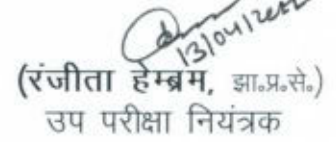 13/04/2022
(रंजीता हेम्ब्रम, झा०प्र०से०)
उप परीक्षा नियंत्रक